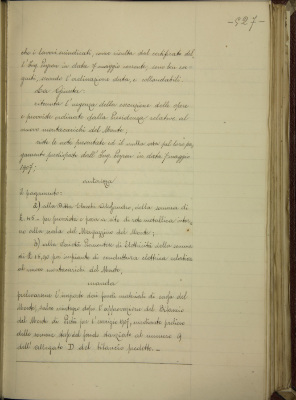 -527-
che i lavori suindicati, come risulta dal certificato del-
l'Ing. Pogean in data 7 maggio corrente, sono ben ese-
guiti, secondo l'ordinazione data, e collaudabili.
La Giunta
ritenuta l'urgenza della esecuzione delle opere
e provviste ordinate dalla Presidenza relative al
nuovo montacarichi del Monte;
viste le note presentate ed il nulla osta pel loro pa-
gamento partecipato dall'Ing. Pogean in data 7 maggio
1907;
autorizza
il pagamento:
a) alla Ditta Vianini Aldighieri, della somma di
£. 106.- per provvista e posa in sito di rete metallica inter-
no alla scala del Magazzino del Monte;
b) alla Società Piemontese di Elettricità della somma
di £. 14,90 per impianto di conduttura elettrica relativa
al nuovo montacarichi del Monte;
manda
prelevarsene l'importo dai fondi materiali di cassa del
Monte, salvo conteggio dopo l'approvazione del Bilancio
del Monte di Pietà per l'esercizio 1907, mediante prelievo
delle somme stesse dal fondo stanziato al numero 19
dell'allegato D. del bilancio predetto. -